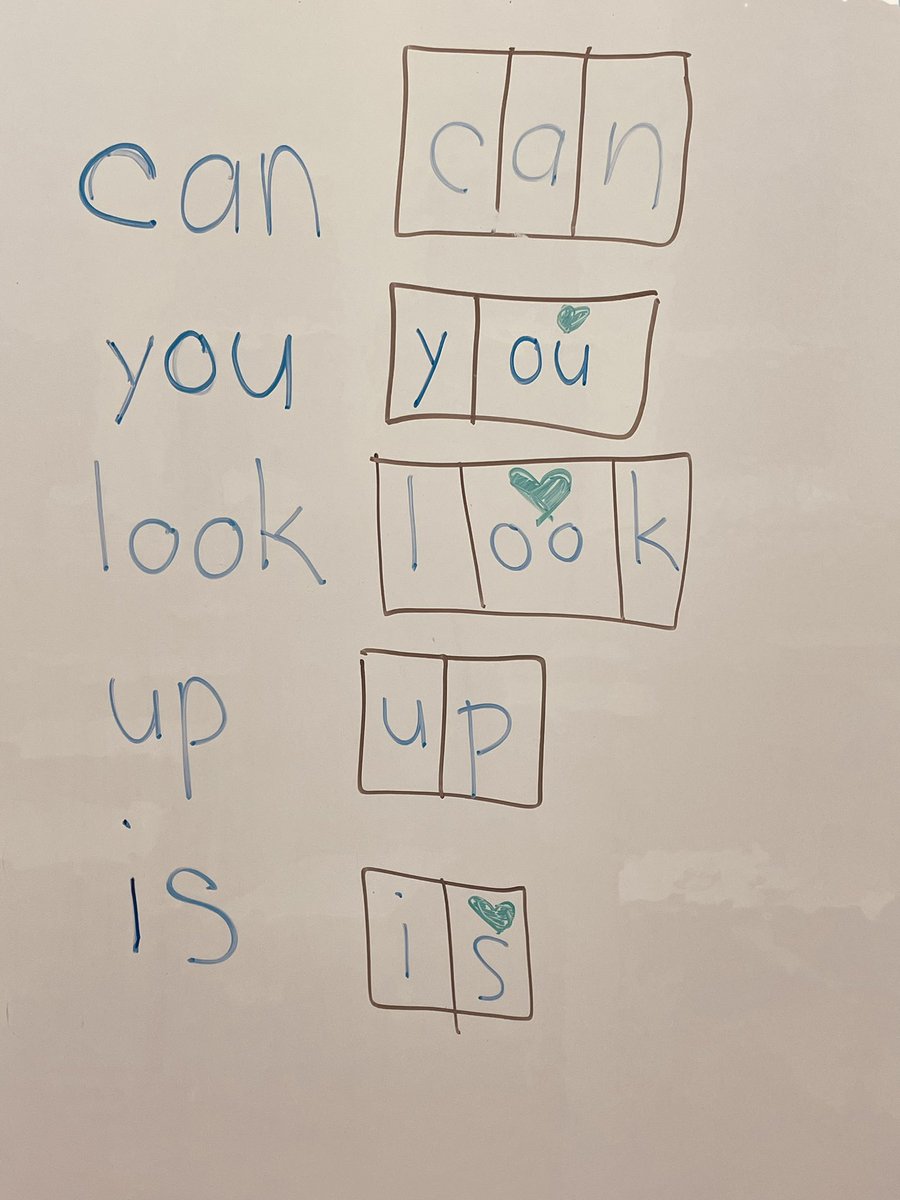 can can
you you
look look
up up
is is